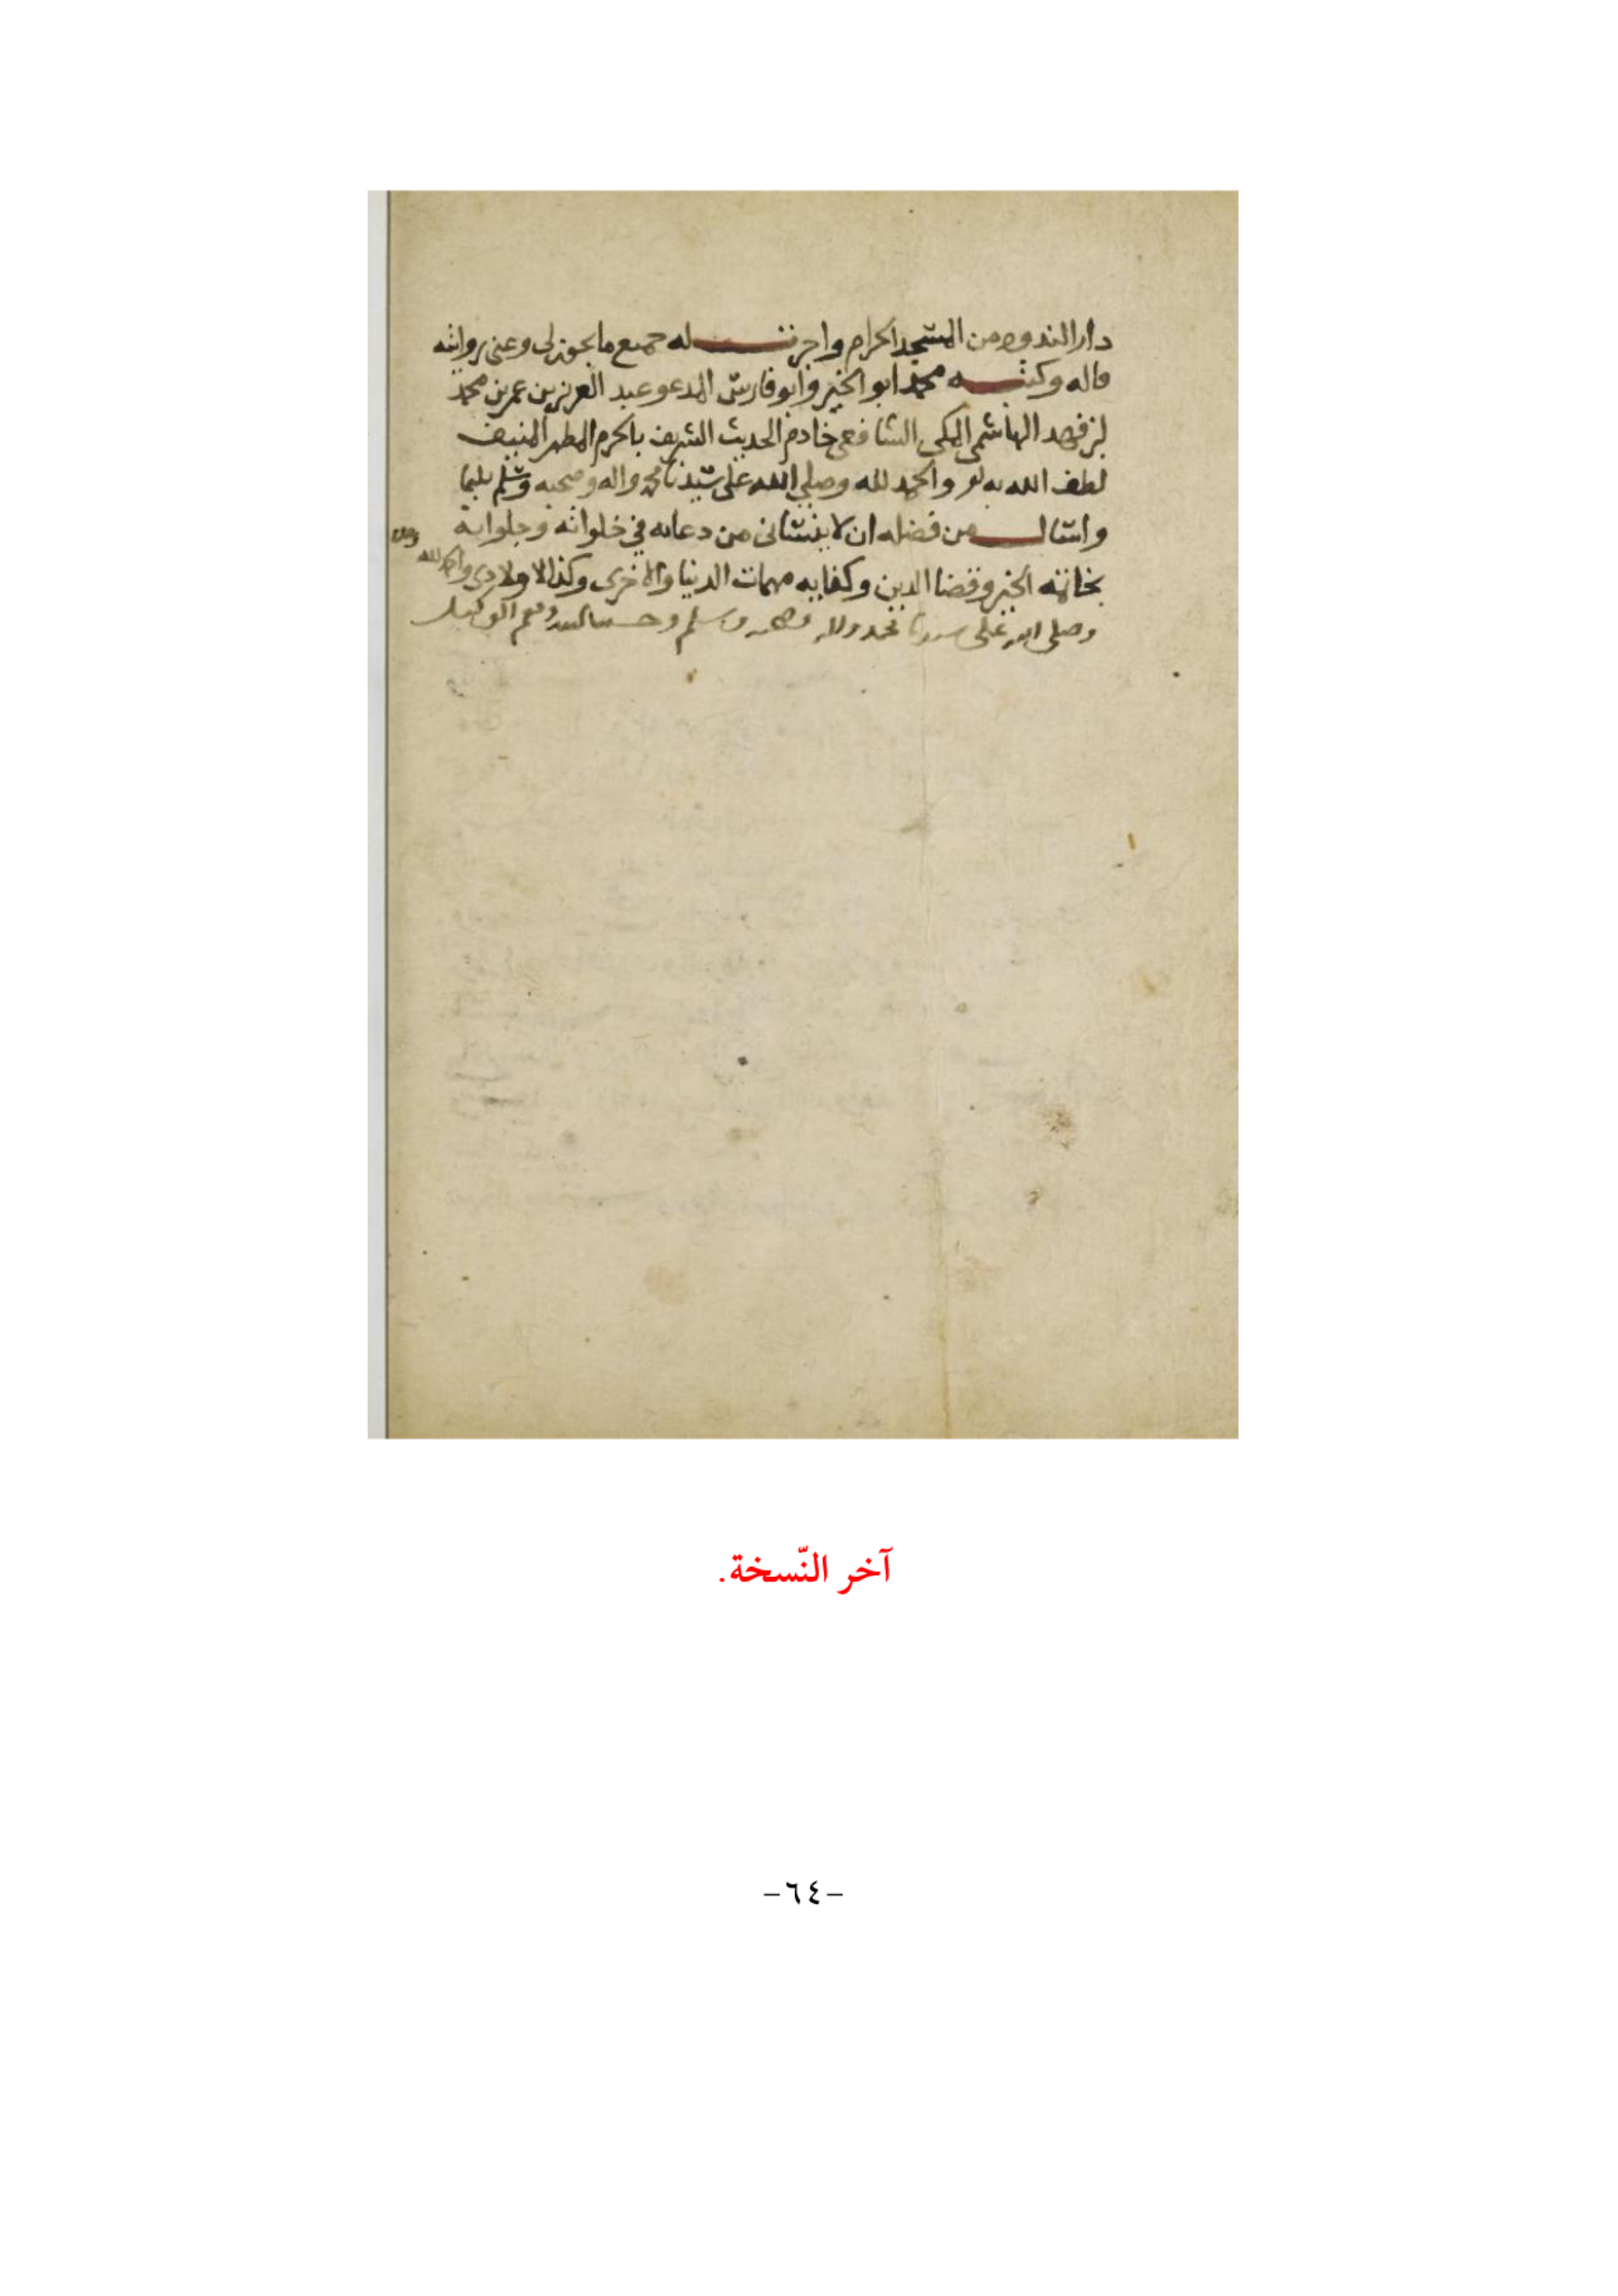 دار الندوة من المسجد الحرام واجزت له جميع ما يجوز لي وعني روايته
قاله وكتبه محمد ابو الخير وابو فارس المدعو عبد العزيز بن عمر بن محمد
ابن فهد الهاشمي المكي الشافعي خادم الحديث الشريف بالحرم المطهر المنيف
لطف الله به والحمد لله وصلى الله على سيدنا محمد واله وصحبه وسلم
واسال من فضله ان لا ينساني من دعائه في خلواته وجلواته
بخاتمة الخير وقضا الدين وكفاية مهمات الدنيا والاخرى وكذا لاولادي والحمد لله
وصلى الله على سيدنا محمد واله وصحبه وسلم وحسبنا الله ونعم الوكيل
آخر النّسخة.
-٦٤-